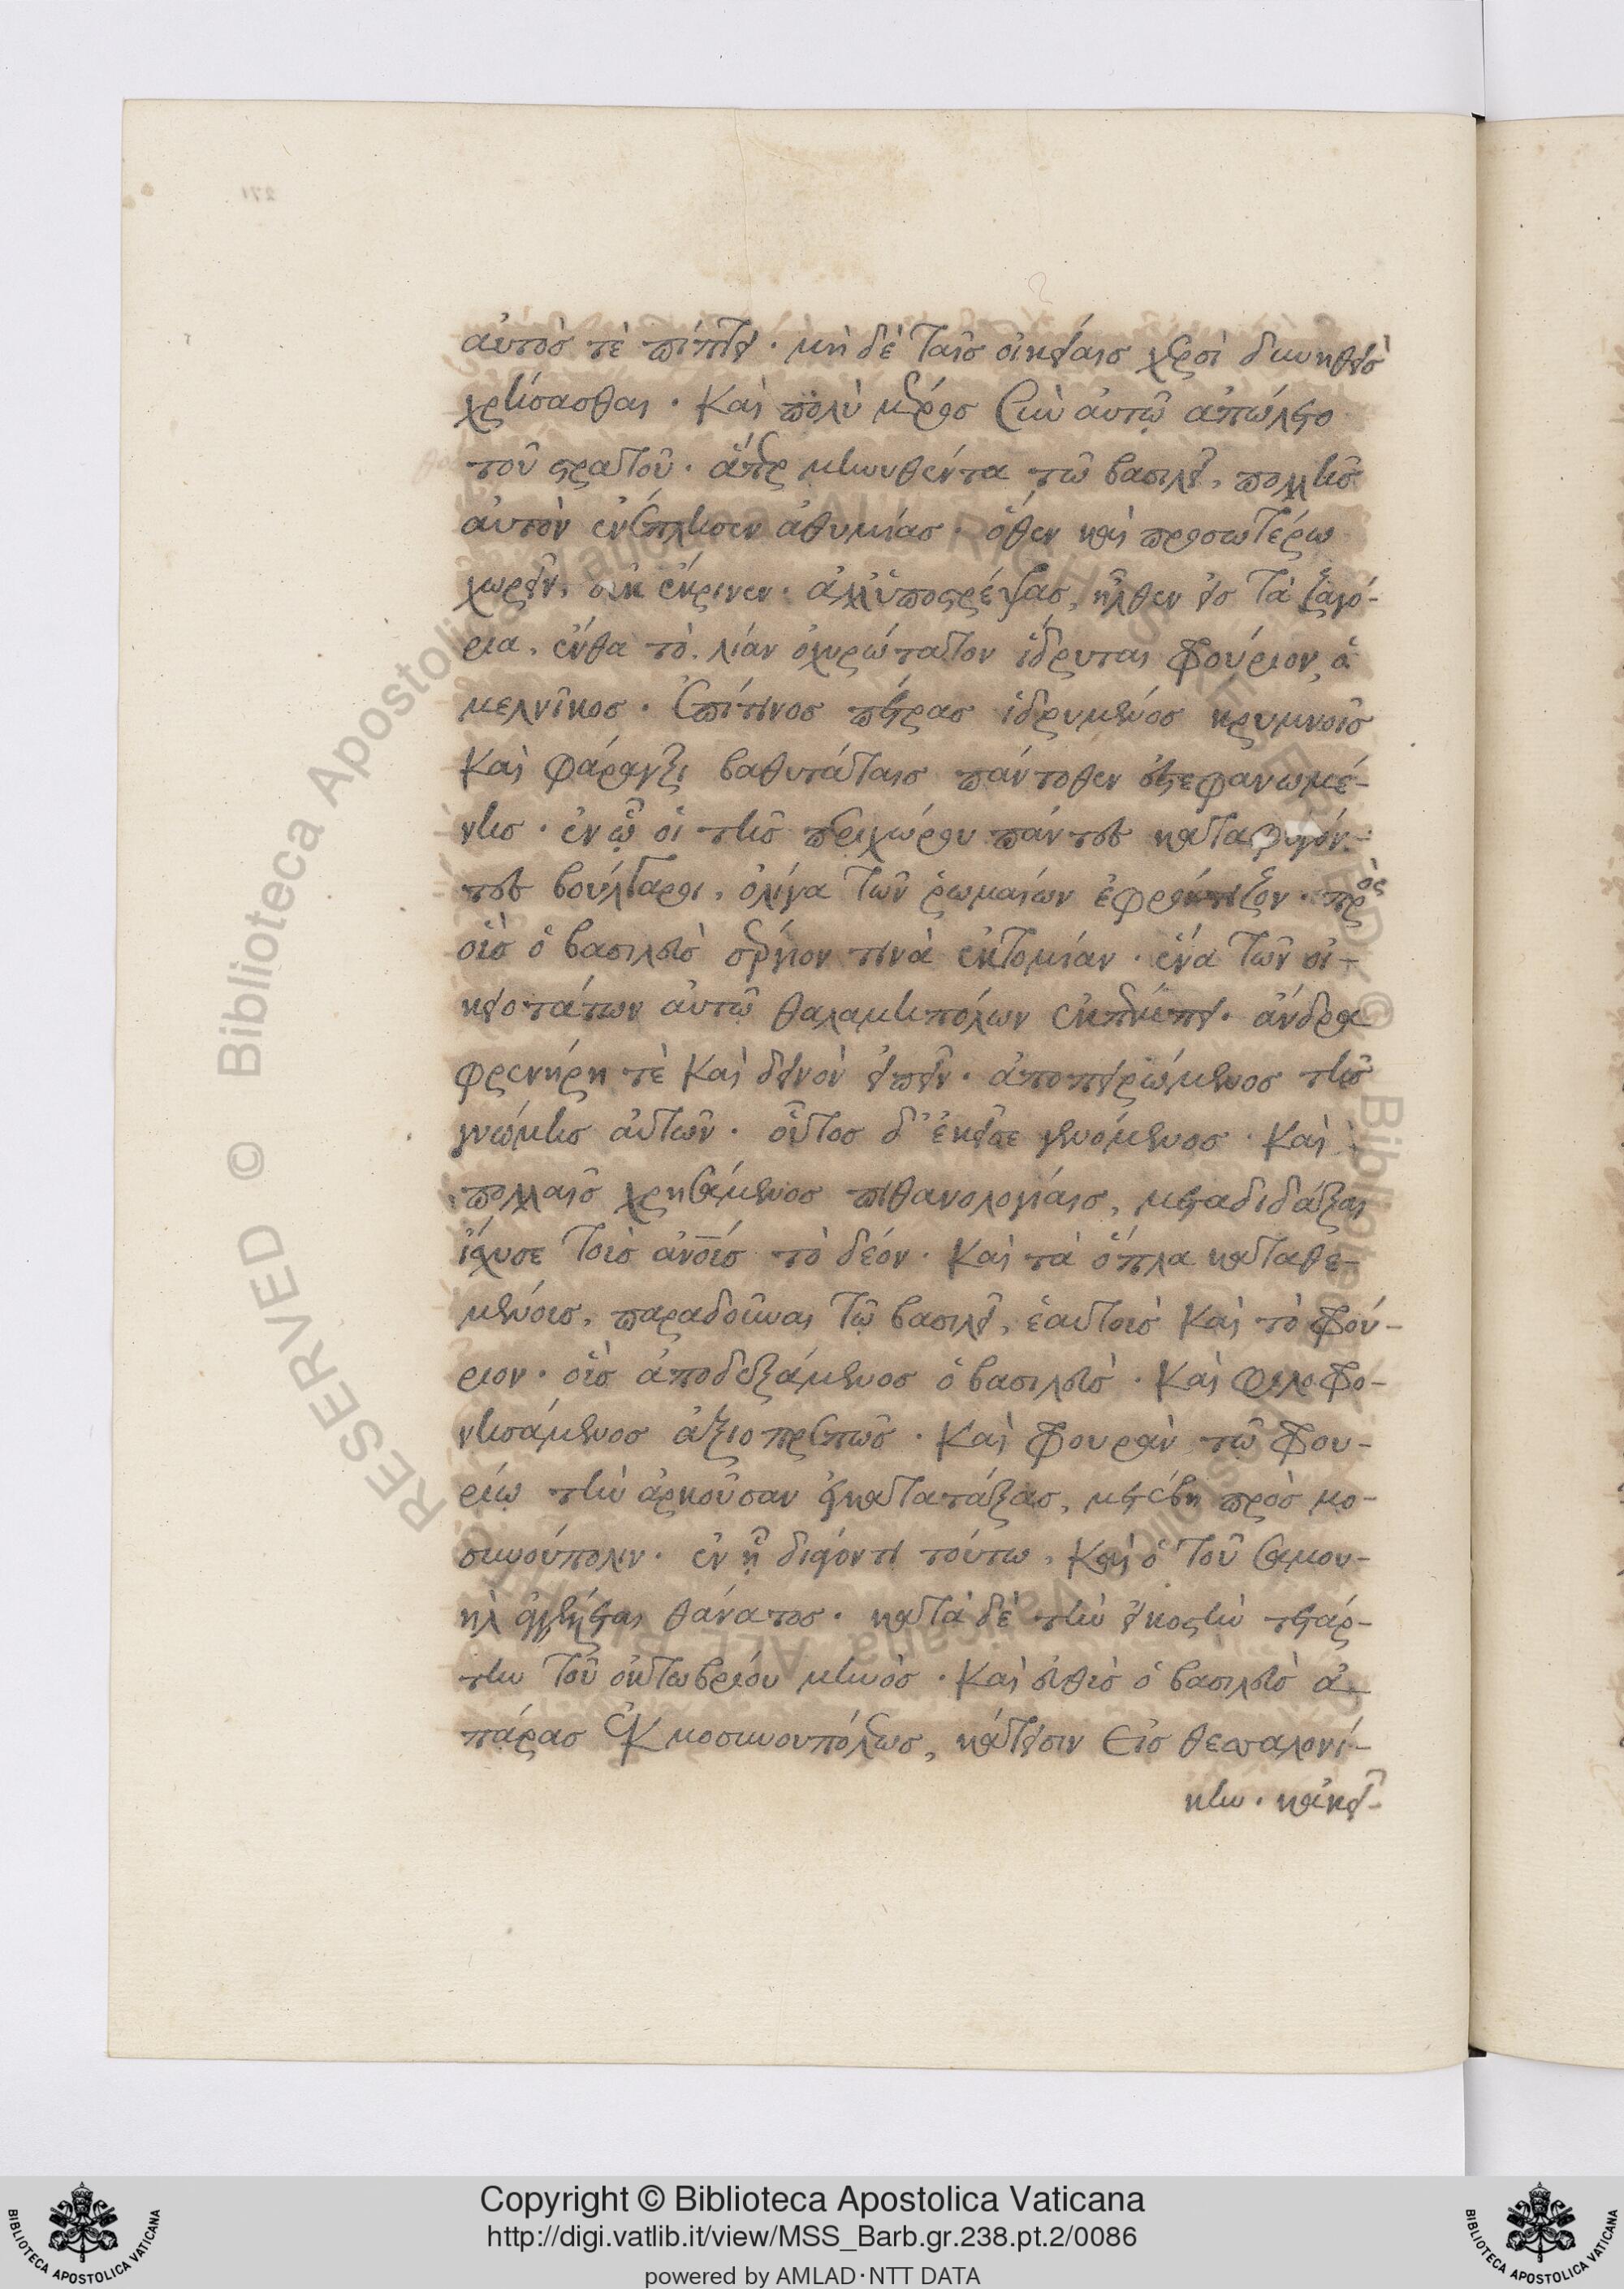 αὐτὸς τὲ πίπτει. μὴ δὲ ταῖς οἰκείαις χερσὶ δυνηθεὶς
χρήσασθαι. καὶ πολὺ μέρος σὺν αὐτῷ ἀπώλετο
τοῦ στρατοῦ. ἅπερ μηνυθέντα τῶ βασιλεῖ, πολλῆς
αὐτὸν ἐνέπλησεν ἀθυμίας. ὅθεν καὶ προσωτέρω
χωρεῖν, οὐκ ἔκρινεν. ἀλλ' ὑποστρέψας, ἦλθεν εἰς τὰ ζαγό-
ρια, ἔνθα τὸ λίαν ὀχυρώτατον ἵδρυται φρούριον, ὁ
μελνῖκος. ἐπί τινος πέτρας ἱδρυμένος κρημνοῖς
καὶ φάραγξι βαθυτάταις πάντοθεν ἐστεφανωμέ-
νης. ἐν ᾧ οἱ τῆς περιχώρου πάντες καταφυγόν-
τες βούλγαροι, ὀλίγα τῶν ῥωμαίων ἐφρόντιζον. πρὸς
οὓς ὁ βασιλεὺς σέργιον τινὰ ἐκτομίαν. ἕνα τῶν οἰ-
κειοτάτων αὐτῷ θαλαμηπόλων ἐκπέμπει. ἄνδρα
φρενήρη τὲ καὶ δεινὸν εἰπεῖν. ἀποπειρώμενος τῆς
γνώμης αὐτῶν. οὗτος δ' ἐκεῖσε γενόμενος. καὶ
πολλαῖς χρησάμενος πιθανολογίαις, μεταδιδάξαι
ἴσχυσε τοῖς ἀνοῖς τὸ δέον. καὶ τὰ ὅπλα καταθε-
μένοις, παραδοῦναι τῷ βασιλεῖ, ἑαυτοὺς καὶ τὸ φρού-
ριον. οὓς ἀποδεξάμενος ὁ βασιλεὺς. καὶ φιλοφρο-
νησάμενος ἀξιοπρεπῶς. καὶ φρουρὰν τῷ φρου-
ρίῳ τὴν ἀρκοῦσαν ἐγκατατάξας, μετέβη πρὸς μο-
συνούπολιν. ἐν ἧ διάγοντι τούτω, καὶ ὁ τοῦ σαμου-
ὴλ ἀγγέλλεται θάνατος. κατὰ δὲ τὴν εἰκοστὴν τετάρ-
την τοῦ ὀκτωβρίου μηνός. καὶ εὐθὺς ὁ βασιλεὺς ἀ-
πάρας ἐκ μοσυνουπόλεως, κάτεισιν εἰς θεσσαλονί-
κην. κἀκεῖ-
Copyright © Biblioteca Apostolica Vaticana
http://digi.vatlib.it/view/MSS_Barb.gr.238.pt.2/0086
powered by AMLAD·NTT DATA